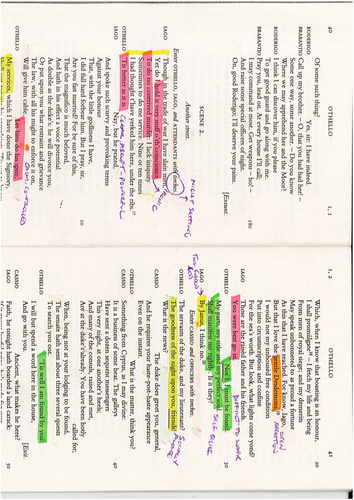 40
OTHELLO
I, 1
Of some such thing?
RODERIGO
Yes, sir: I have indeed.
BRABANTIO
Call up my brother. – O, that you had had her!
Some one way, some another. – Do you know
Where we may apprehend her and the Moor?
RODERIGO
I think I can discover him, if you please
To get good guard and go along with me.
BRABANTIO
Pray you, lead on. At every house I'll call;
I may command at most. Get weapons – ho! –
180
And raise some special officers of night.
On, good Roderigo; I'll deserve your pains.
[Exeunt.
SCENE 2.
Another street.
Enter OTHELLO, IAGO, and ATTENDANTS with torches.
IAGO
Though in the trade of war I have slain men,
Yet do I hold it very stuff o'th'conscience
To do no contrived murder. I lack iniquity
Sometimes to do me service. Nine or ten times
I had thought t'have yerked him here, under the ribs.
OTHELLO
'Tis better as it is.
IAGO
Nay, but he prated,
And spoke such scurvy and provoking terms
Against your honour
That, with the little godliness I have,
I did full hard forbear him. But I pray, sir,
10
Are you fast married? For be sure of this,
That the magnifico is much beloved,
And hath in his effect a voice potential
As double as the duke's; he will divorce you,
Or put upon you what restraint and grievance
The law, with all his might to enforce it on,
Will give him cable.
OTHELLO
Let him do his spite:
My services, which I have done the Signiory,
I, 2
OTHELLO
41
Which, when I know that boasting is an honour,
I shall promulgate – I fetch my life and being
From men of royal siege; and my demerits
May speak unbonneted to as proud a fortune
As this that I have reached. For know, Iago,
But that I love the gentle Desdemona,
I would not my unhoused free condition
Put into circumscription and confine
For the sea's worth. But look, what lights come yond?
IAGO
These are the raised father and his friends.
You were best go in.
OTHELLO
Not I; I must be found.
My parts, my title, and my perfect soul
Shall manifest me rightly. Is it they?
IAGO
By Janus, I think no.
Enter CASSIO and OFFICERS with torches.
OTHELLO
The servants of the duke, and my lieutenant!
The goodness of the night upon you, friends!
What is the news?
CASSIO
The duke does greet you, general,
And he requires your haste-post-haste appearance
Even on the instant.
OTHELLO
What is the matter, think you?
CASSIO
Something from Cyprus, as I may divine:
It is a business of some heat. The galleys
40
Have sent a dozen sequent messengers
This very night at one another's heels;
And many of the consuls, raised and met,
Are at the duke's already. You have been hotly called for;
When, being not at your lodging to be found,
The senate hath sent about three several quests
To search you out.
OTHELLO
'Tis well I am found by you:
I will but spend a word here in the house,
And go with you.
[Exit.
CASSIO
Ancient, what makes he here?
IAGO
Faith, he tonight hath boarded a land carack:
50